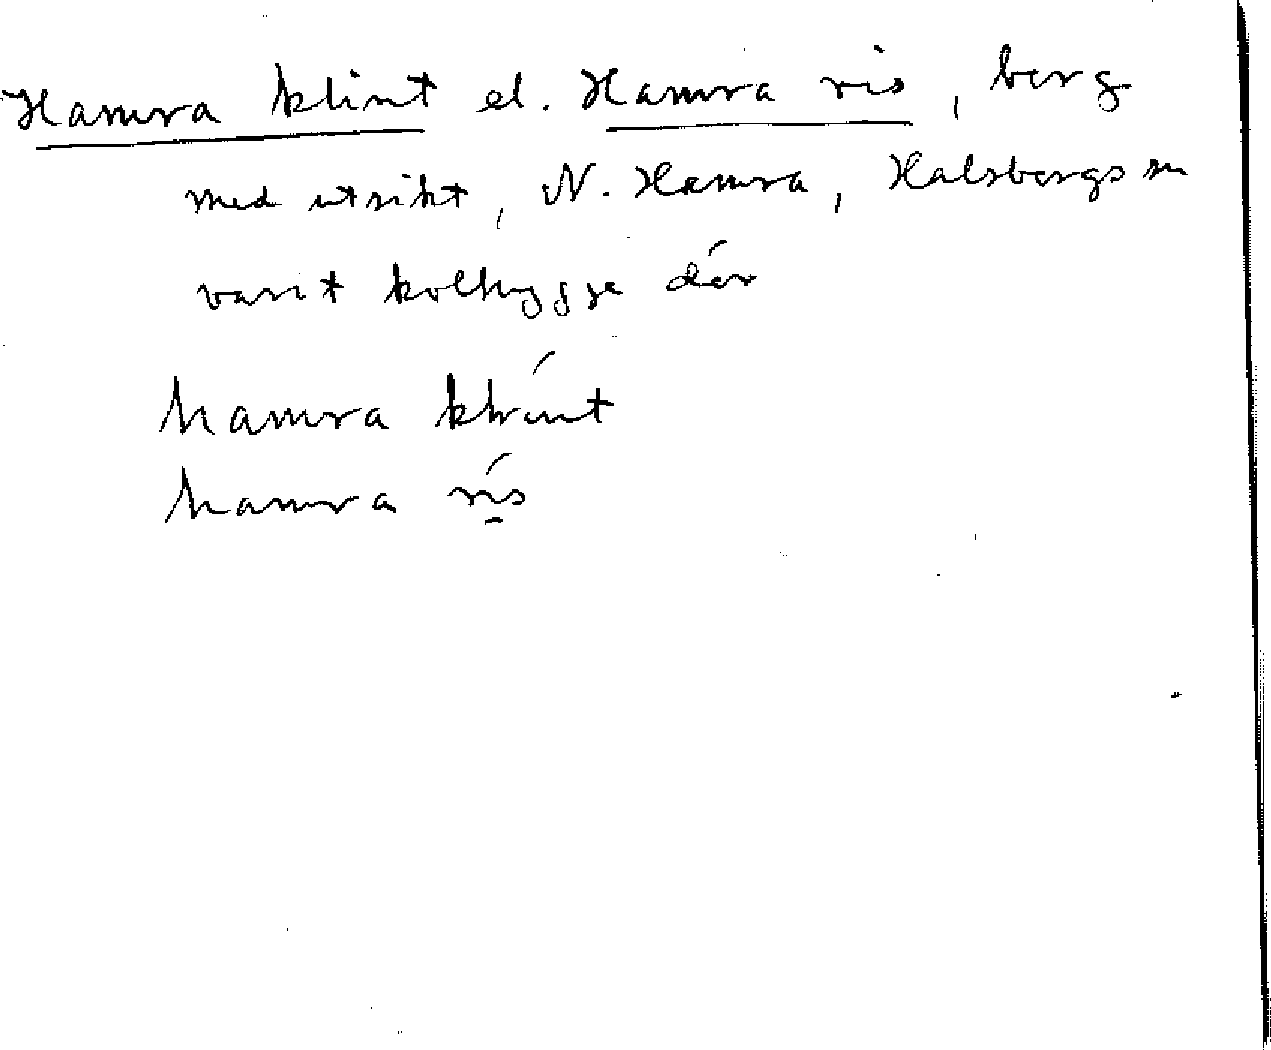 Hamra klint el. Hamra ris, berg
med utsikt, N. Hamra, Halsbergs sn
varit kolhygge där
hamra klínt
hamra rí̱s